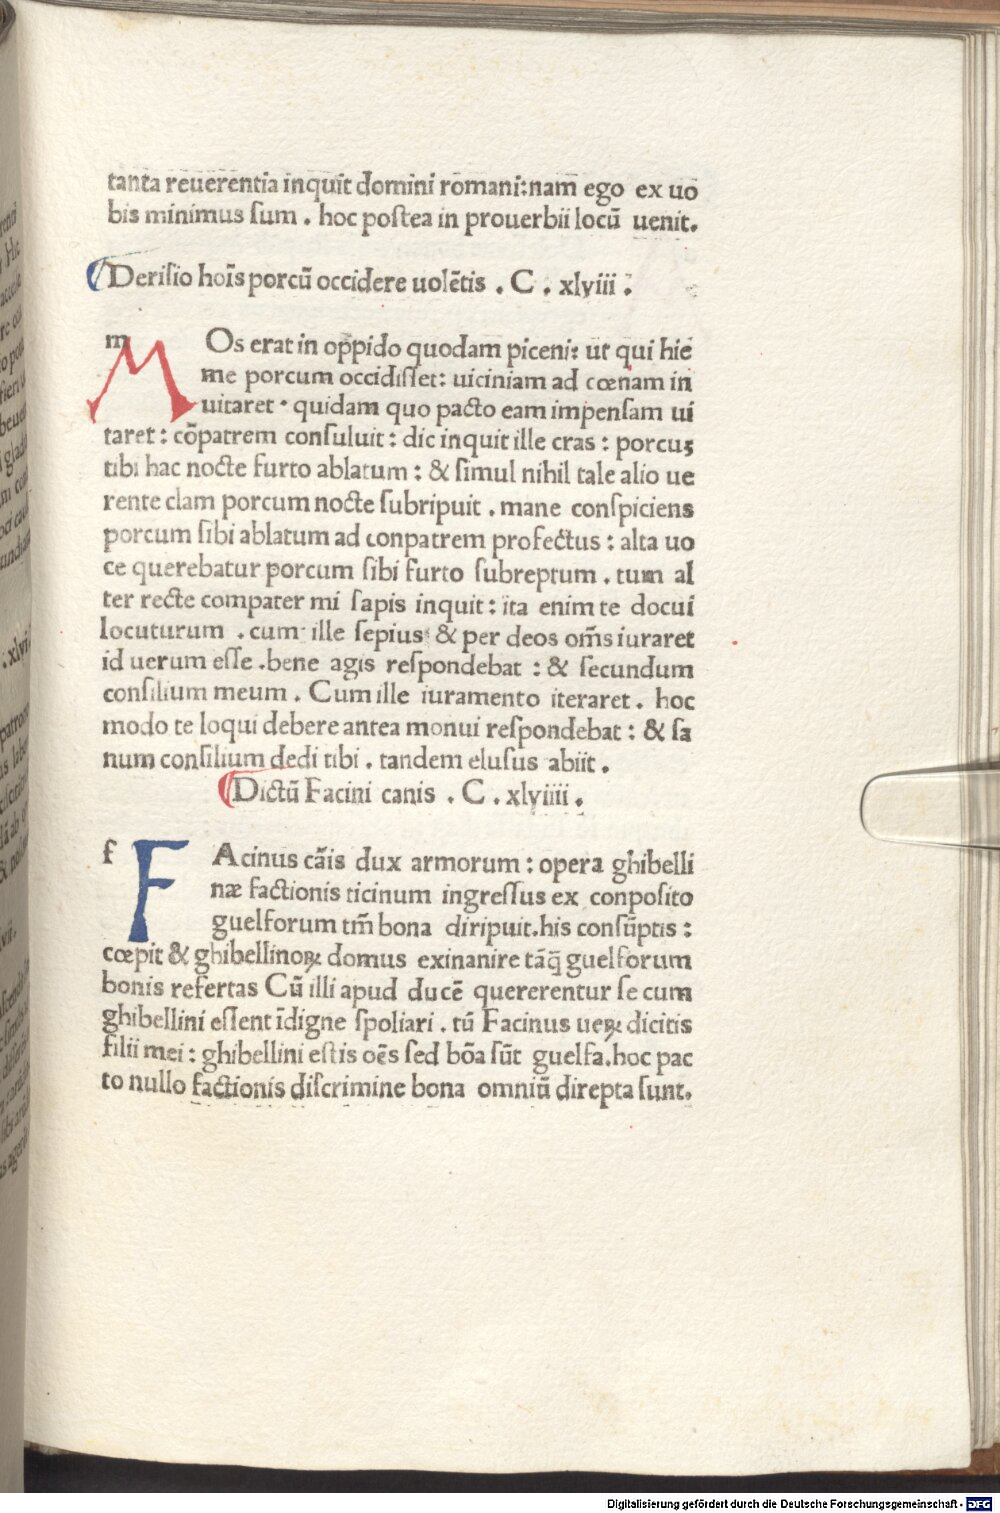 tanta reuerentia inquit domini romani:nam ego ex uo
bis minimus sum . hoc postea in prouerbii locū uenit.
Derisio hoīs porcū occidere uolētis . C . xlyiii .
m
MOs erat in oppido quodam piceni: ut qui hie
me porcum occidisset: uiciniam ad cœnam in
uitaret · quidam quo pacto eam impensam ui
taret : cōpatrem consuluit : dic inquit ille cras : porcus
tibi hac nocte furto ablatum : & simul nihil tale alio ue
rente clam porcum nocte subripuit . mane conspiciens
porcum sibi ablatum ad conpatrem profectus : alta uo
ce querebatur porcum sibi furto subreptum . tum al
ter recte compater mi sapis inquit : ita enim te docui
locuturum . cum ille sepius & per deos om̄s iuraret
id uerum esse .bene agis respondebat : & secundum
consilium meum . Cum ille iuramento iteraret . hoc
modo te loqui debere antea monui respondebat : & sa
num consilium dedi tibi . tandem elusus abiit .
Dictū Facini canis . C . xlyiiii .
f
FAcinus cāis dux armorum : opera ghibelli
næ factionis ticinum ingressus ex conposito
guelforum tm̄ bona diripuit.his consūptis :
cœpit & ghibellinoꝝ domus exinanire tāq̄ guelforum
bonis refertas Cū illi apud ducē quererentur se cum
ghibellini essent īdigne spoliari . tū Facinus ueꝝ dicitis
filii mei : ghibellini estis oēs sed bōa sūt guelfa.hoc pac
to nullo factionis discrimine bona omniū direpta sunt.
Digitalisierung gefördert durch die Deutsche Forschungsgemeinschaft - DFG